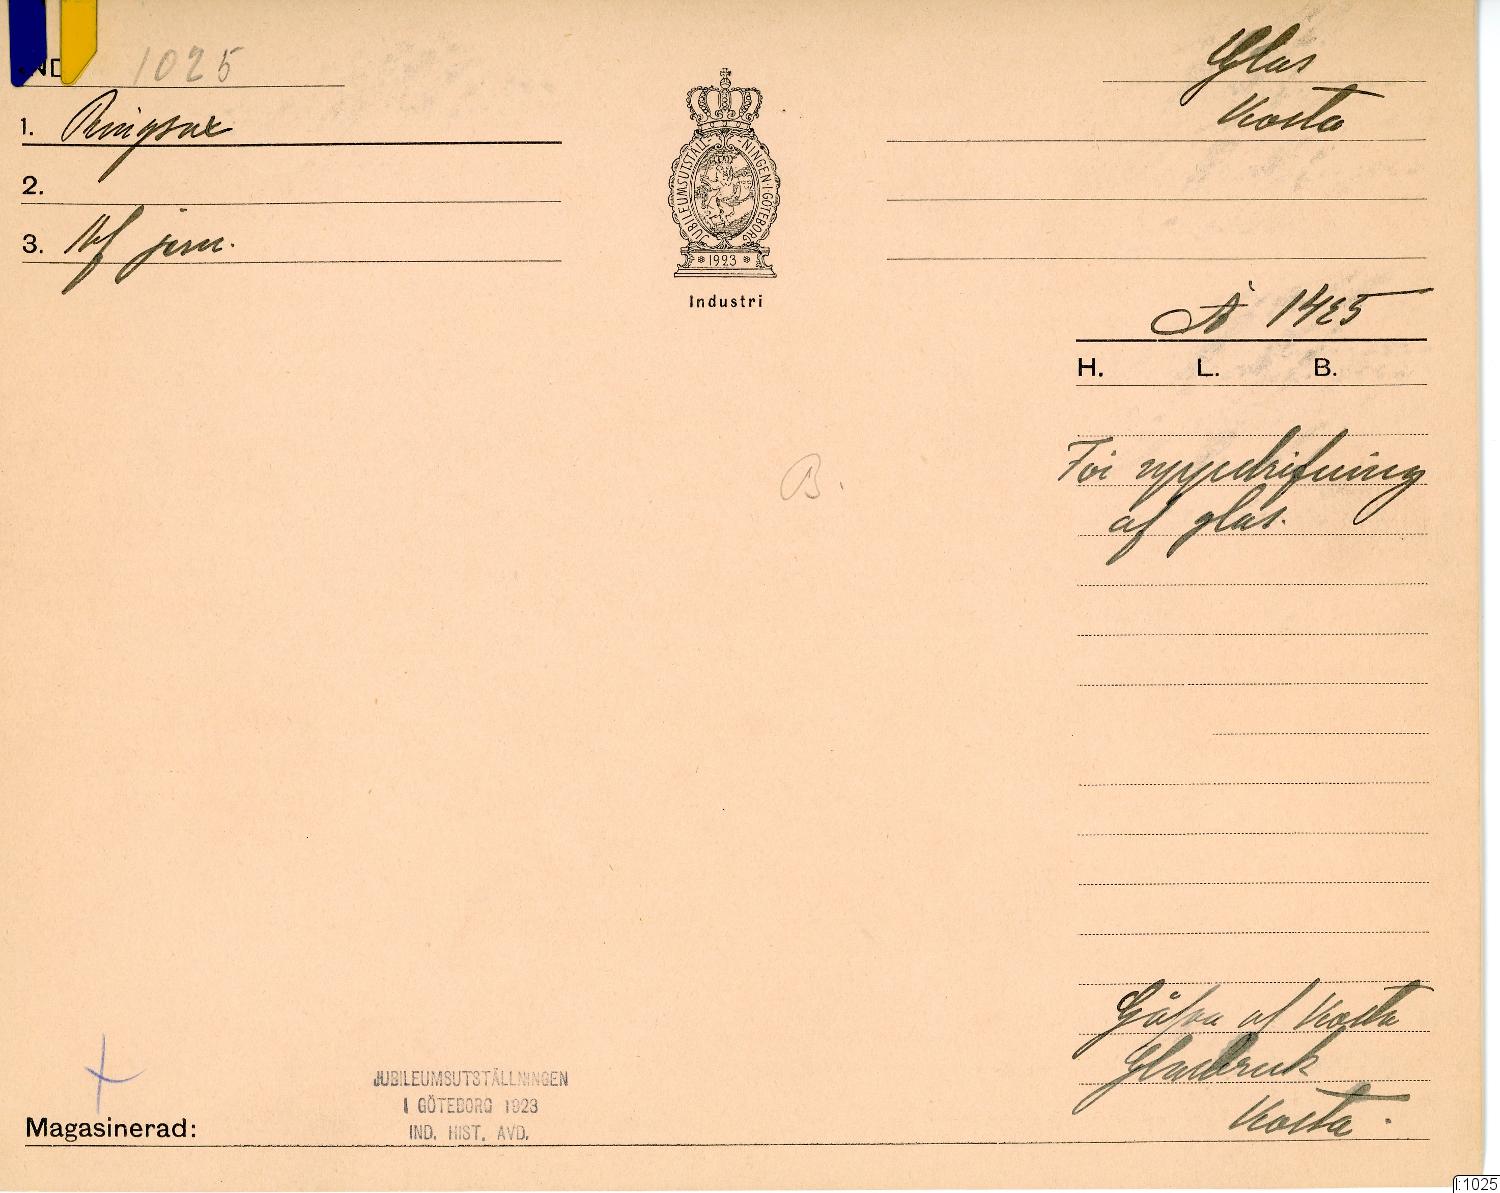 IND 1025
1. Ringsax
2.
3. Af jern.
JUBILEUMSUTSTÄLLNINGEN I GÖTEBORG
* 1923 *
Industri
Glas
Kosta
Å 1425
H. L. B.
För uppdrifning
af glas.
B.
Gåfva af Kosta
Glasbruk
Kosta.
JUBILEUMSUTSTÄLLNINGEN
I GÖTEBORG 1923
IND. HIST. AVD.
Magasinerad:
I:1025